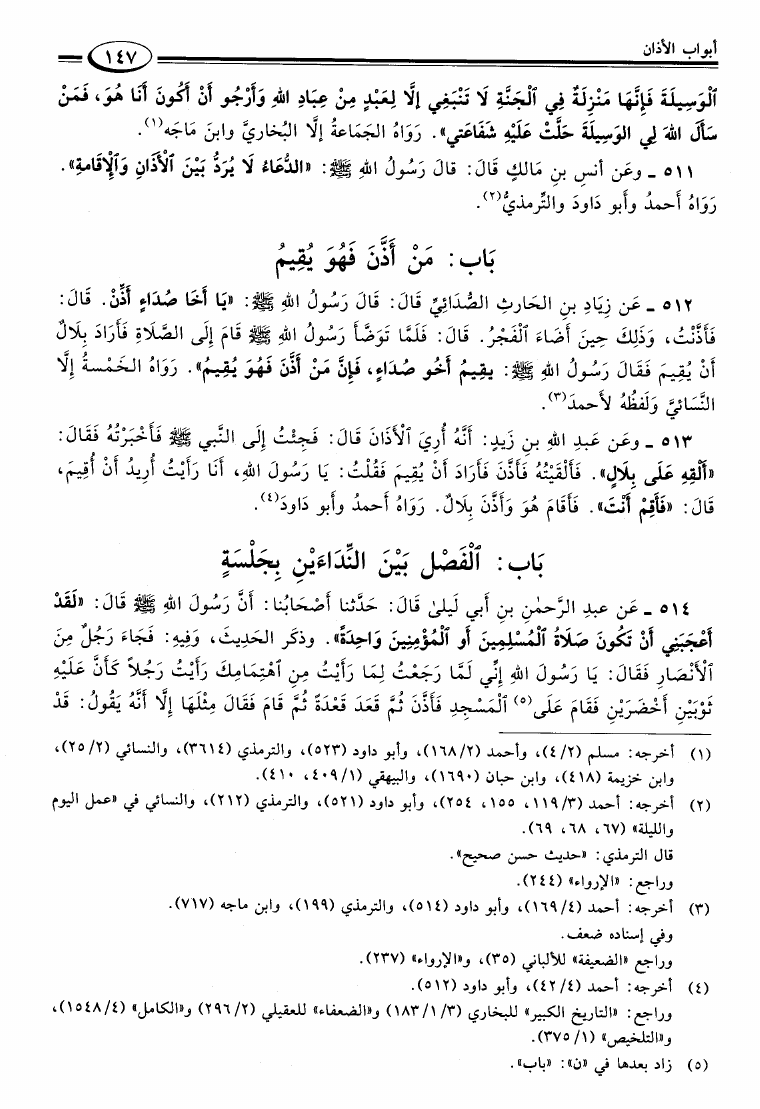 أبواب الأذان
١٤٧
الْوَسِيلَةَ فَإِنَّهَا مَنْزِلَةٌ فِي الْجَنَّةِ لَا تَنْبَغِي إِلَّا لِعَبْدٍ مِنْ عِبَادِ اللهِ وَأَرْجُو أَنْ أَكُونَ أَنَا هُوَ، فَمَنْ
سَأَلَ اللهَ لِي الوَسِيلَةَ حَلَّتْ عَلَيْهِ شَفَاعَتِي». رَوَاهُ الجَمَاعَةُ إلَّا البُخاريَّ وابنَ مَاجَه(١).
٥١١ ـ وعَن أنسِ بنِ مَالكٍ قَالَ: قالَ رَسُولُ اللهِ ﷺ: «الدُّعَاءُ لَا يُرَدُّ بَيْنَ الْأَذَانِ وَالْإِقَامةِ».
رَوَاهُ أَحمدُ وأبو دَاودَ والتِّرمذيُّ(٢).
بَاب: مَنْ أَذَّنَ فَهُوَ يُقِيمُ
٥١٢ ـ عَن زِيَادِ بنِ الحَارثِ الصُّدَائِيِّ قَالَ: قَالَ رَسُولُ اللهِ ﷺ: «يَا أَخَا صُدَاءٍ أَذِّنْ. قَالَ:
فَأَذَّنْتُ، وَذَلِكَ حِينَ أَضَاءَ الْفَجْرُ. قَالَ: فَلَمَّا تَوَضَّأَ رَسُولُ اللهِ ﷺ قَامَ إِلَى الصَّلَاةِ فَأَرَادَ بِلَالٌ
أَنْ يُقِيمَ فَقَالَ رَسُولُ اللهِ ﷺ: يقِيمُ أَخُو صُدَاءٍ، فَإِنَّ مَنْ أَذَّنَ فَهُوَ يُقِيمُ». رَوَاهُ الخَمْسةُ إلَّا
النَّسَائيَّ وَلَفظُهُ لأحمدَ(٣).
٥١٣ ـ وعَن عَبدِ اللهِ بنِ زَيدٍ: أَنَّهُ أُرِيَ الْأَذَانَ قَالَ: فَجِئْتُ إِلَى النَّبي ﷺ فَأَخْبَرْتُهُ فَقَالَ:
«أَلْقِهِ عَلَى بِلَالٍ». فَأَلْقَيْتُهُ فَأَذَّنَ فَأَرَادَ أَنْ يُقِيمَ فَقُلْتُ: يَا رَسُولَ اللهِ، أَنَا رَأَيْتُ أُرِيدُ أَنْ أُقِيمَ،
قَالَ: «فَأَقِمْ أَنْتَ». فَأَقَامَ هُوَ وَأَذَّنَ بِلَالٌ. رَوَاهُ أَحمدُ وأبو دَاودَ(٤).
بَاب: الْفَصْلِ بَيْنَ النِّدَاءَيْنِ بِجَلْسَةٍ
٥١٤ ـ عَن عبدِ الرَّحمٰنِ بنِ أَبي لَيلىٰ قَالَ: حَدَّثنا أَصْحَابُنا: أَنَّ رَسُولَ اللهِ ﷺ قَالَ: «لَقَدْ
أَعْجَبَنِي أَنْ تَكُونَ صَلَاةُ الْمُسْلِمِينَ أَو الْمُؤْمِنِينَ وَاحِدَةً». وذكَر الحَدِيثَ، وَفِيهِ: فَجَاءَ رَجُلٌ مِنَ
الْأَنْصَارِ فَقَالَ: يَا رَسُولَ اللهِ إِنِّي لَمَّا رَجَعْتُ لِمَا رَأَيْتُ مِن اهْتِمَامِكَ رَأَيْتُ رَجُلاً كَأَنَّ عَلَيْهِ
ثَوْبَيْنِ أَخْضَرَيْنِ فَقَامَ عَلَى(٥) الْمَسْجِدِ فَأَذَّنَ ثُمَّ قَعَدَ قَعْدَةً ثُمَّ قَامَ فَقَالَ مِثْلَهَا إِلَّا أَنَّهُ يَقُولُ: قَدْ
(١) أخرجه: مسلم (٤/٢)، وأحمد (١٦٨/٢)، وأبو داود (٥٢٣)، والترمذي (٣٦١٤)، والنسائي (٢٥/٢)،
وابن خزيمة (٤١٨)، وابن حبان (١٦٩٠)، والبيهقي (٤٠٩/١، ٤١٠).
(٢) أخرجه: أحمد (١١٩/٣، ١٥٥، ٢٥٤)، وأبو داود (٥٢١)، والترمذي (٢١٢)، والنسائي في «عمل اليوم
والليلة» (٦٧، ٦٨، ٦٩).
قال الترمذي: «حديث حسن صحيح».
وراجع: «الإرواء» (٢٤٤).
(٣) أخرجه: أحمد (١٦٩/٤)، وأبو داود (٥١٤)، والترمذي (١٩٩)، وابن ماجه (٧١٧).
وفي إسناده ضعف.
وراجع «الضعيفة» للألباني (٣٥)، و«الإرواء» (٢٣٧).
(٤) أخرجه: أحمد (٤٢/٤)، وأبو داود (٥١٢).
وراجع: «التاريخ الكبير» للبخاري (١٨٣/١/٣) و«الضعفاء» للعقيلي (٢٩٦/٢) و«الكامل» (١٥٤٨/٤)،
و«التلخيص» (٣٧٥/١).
(٥) زاد بعدها في «ن»: «باب».